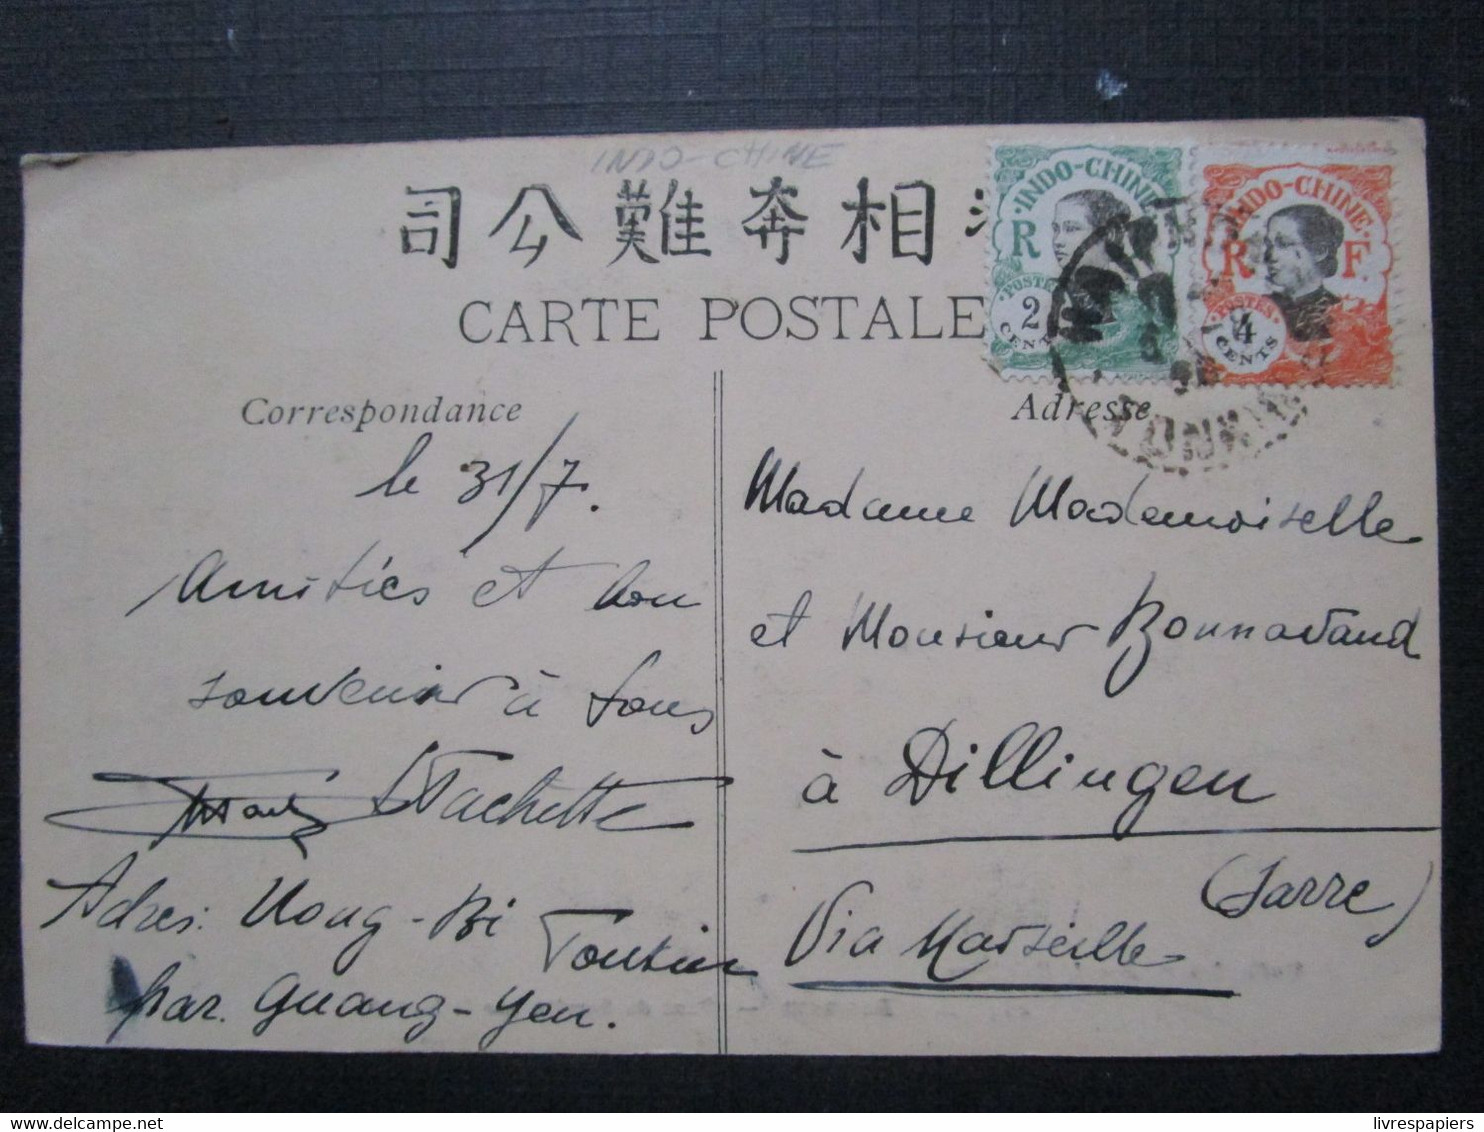 INDO-CHINE
司公難奔相
CARTE POSTALE
INDO-CHINE
R
POSTES
2
CENT
INDO-CHINE
R F
POSTES
4
CENTS
Correspondance
Adresse
le 31/7.
Amitiés et bon
souvenir à tous
Adres: Uong-Bi
Tonkin
par. Quang-Yen.
Madame Mademoiselle
et Monsieur Bonnavaud
à Dillingen
(Sarre)
Via Marseille
livrespapiers